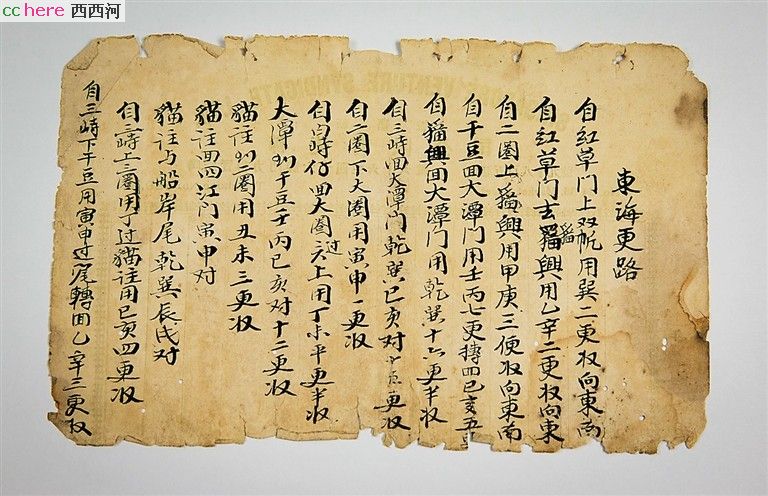 cchere 西西河
東海更路
自红草门上双帆用巽二更收向東南
自红草门去猫興用乙辛二更收向東
自二圈上猫興用甲庚三便收向東南
自干豆回大潭门用壬丙七更轉回巳亥五
自猫興回大潭门用乾巽十六更半收
自三峙回大潭门乾巽巳亥对十五更收
自二圈下大圈用寅申一更收
自白峙仔回大圈过上用丁未平更半收
大潭川干豆壬丙巳亥对十二更收
猫注川二圈用丑未三更收
猫注回四江门寅申对
猫注与船岸尾乾巽辰戌对
自三峙上二圈用丁过猫注用巳亥四更收
自三峙下干豆用寅申过尾轉回乙辛三更收
VENTURE SYNDICATE